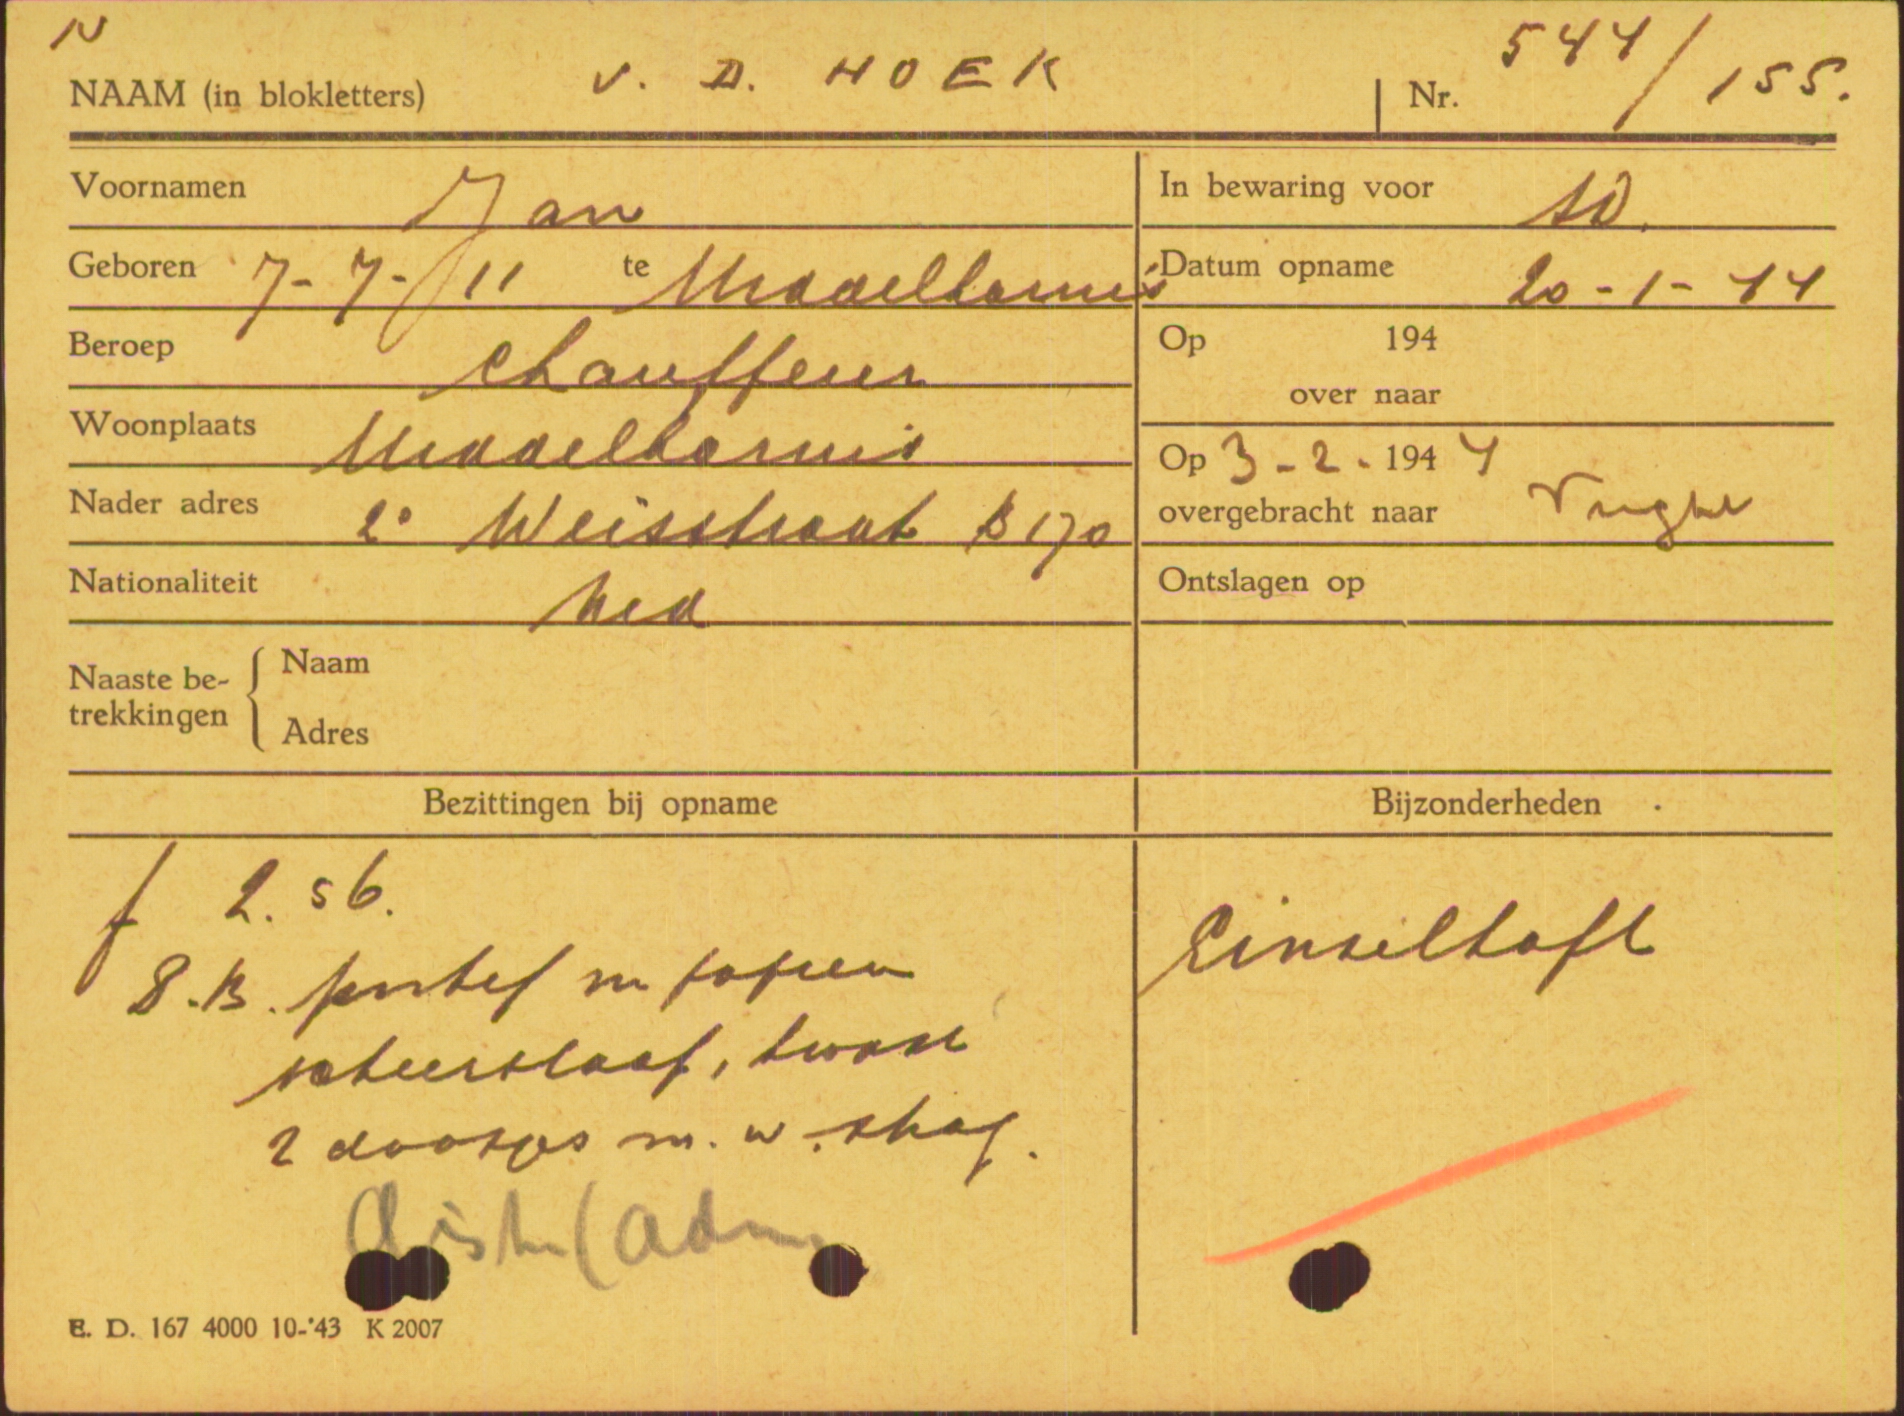 N
NAAM (in blokletters) V. D. HOEK Nr. 544/155.
Voornamen Jan
In bewaring voor SD.
Geboren 7-7-11 te Middelharnis
Datum opname 20-1-44
Beroep Chauffeur
Op 194
over naar
Woonplaats Middelharnis
Op 3-2-1944
Nader adres 2e Weisstraat B 170
overgebracht naar Vught
Nationaliteit Ned
Ontslagen op
Naaste be-
trekkingen
Naam
Adres
Bezittingen bij opname
Bijzonderheden
f 2.56.
P.B. portef m papieren
scheerstaaf, kwast
2 doosjes m. w. shag.
(Adm
Einselhaft
E. D. 167 4000 10-'43 K 2007